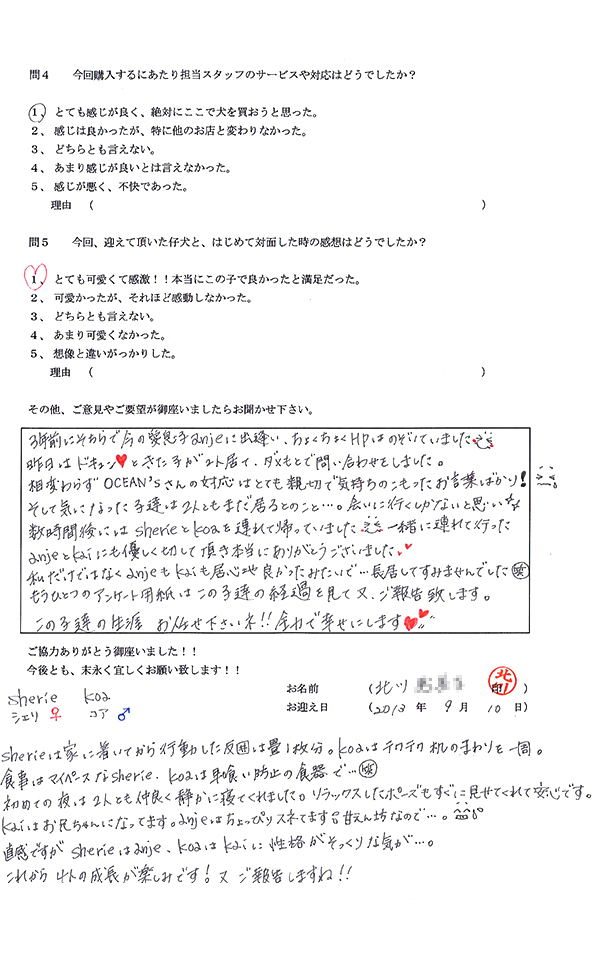 問4　今回購入するにあたり担当スタッフのサービスや対応はどうでしたか？
1、とても感じが良く、絶対にここで犬を買おうと思った。
2、感じは良かったが、特に他のお店と変わりなかった。
3、どちらとも言えない。
4、あまり感じが良いとは言えなかった。
5、感じが悪く、不快であった。
理由　（　　　　　）
問5　今回、迎えて頂いた仔犬と、はじめて対面した時の感想はどうでしたか？
1、とても可愛くて感激！！本当にこの子で良かったと満足だった。
2、可愛かったが、それほど感動しなかった。
3、どちらとも言えない。
4、あまり可愛くなかった。
5、想像と違いがっかりした。
理由　（　　　　　）
その他、ご意見やご要望が御座いましたらお聞かせ下さい。
3年前にそちらで今の愛息子anjeに出逢い、ちょくちょくHPはのぞいていました
昨日はドキュン♥ときた子が2人居て、ダメもとで問い合わせをしました。
相変わらずOCEAN'Sさんの対応はとても親切で気持ちのこもったお言葉ばかり！
そして気になった子達は2人ともまだ居るとのこと…。会いに行くしかないと思い
数時間後にはsherieとkoaを連れて帰っていました 一緒に連れて行った
anjeとkaiにも優しく切して頂き本当にありがとうございました。
私だけではなくanjeもkaiも居心地良かったみたいで…長居してすみませんでした(笑)
もうひとつのアンケート用紙はこの子達の経過を見て又、ご報告致します。
この子達の生涯 お任せ下さいネ！！全力で幸せにします♥♥
ご協力ありがとう御座いました！！
今後とも、末永く宜しくお願い致します！！
sherie koa
シェリ♀ コア♂
お名前　（北川　　印）
北川
お迎え日　（2013 年 9 月 10 日）
sherieは家に着いてから行動した反囲は畳1枚分。koaはテクテク机のまわりを一周。
食事はマイペースなsherie、koaは早食い防止の食器で…(笑)
初めての夜は2人とも仲良く静かに寝てくれました。リラックスしたポーズもすぐに見せてくれて安心です。
kaiはお兄ちゃんになってます。anjeはちょっぴりスネてます 甘えん坊なので…。
直感ですがsherieはanje、koaはkaiに性格がそっくりな気が…。
これから4人の成長が楽しみです！又ご報告しますね！！